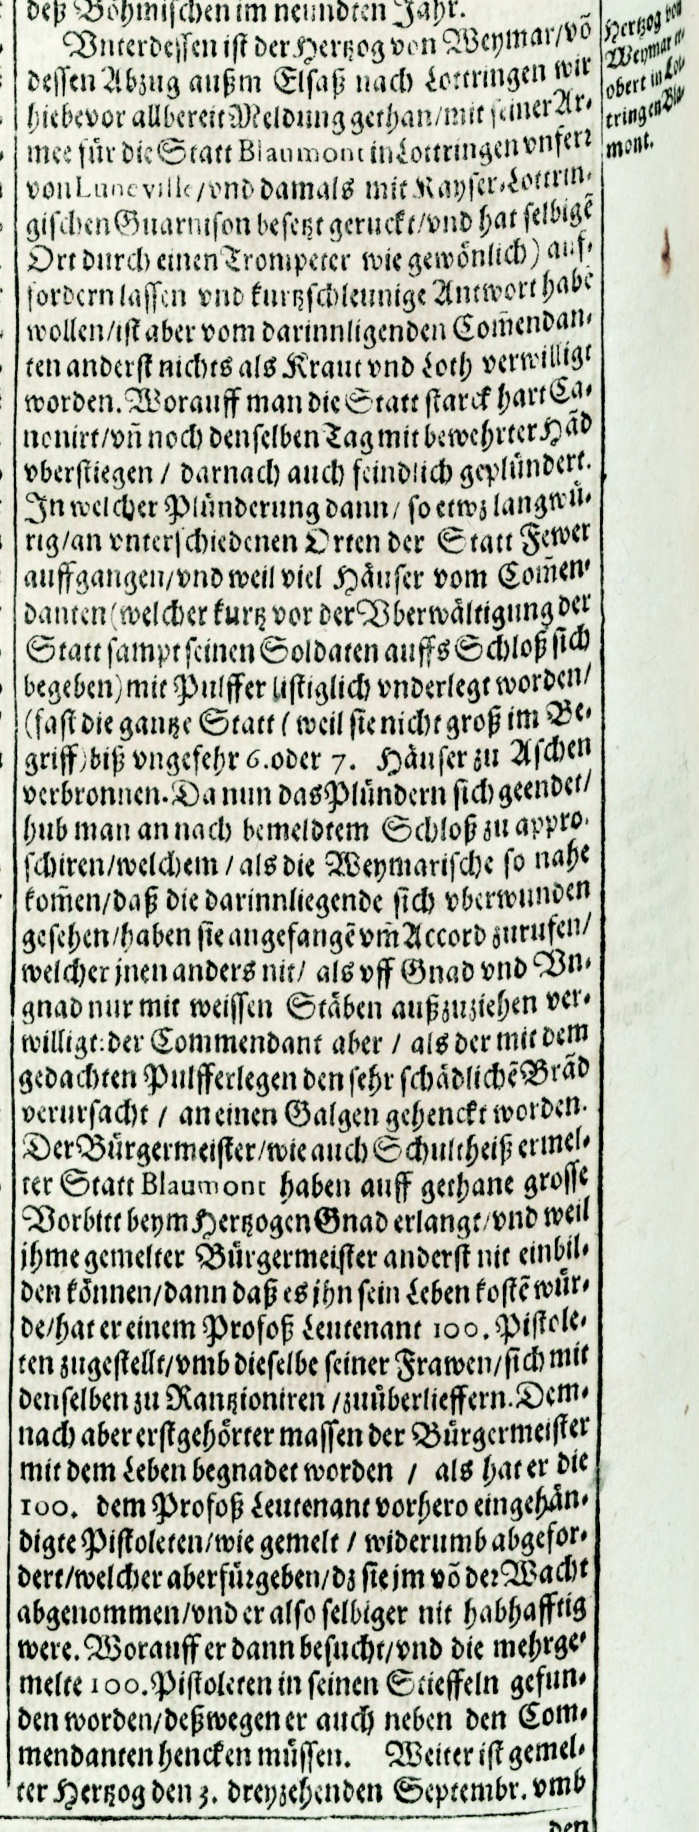 deß Böhmischen im neundten Jahr.
Vnterdessen ist der Hertzog von Weymar/võ
dessen Abzug außm Elsaß nach Lottringen wir
hiebevor allbereit Meldung gethan/mit seiner Ar-
mee für die Statt Blaumont in Lottringen vnferr
von Luneville/vnd damals mit Kayser-Lottrin-
gischen Guarnison besetzt geruckt/vnd hat selbigẽ
Ort durch einen Trompeter wie gewönlich) auf-
fordern lassen vnd kurtzschleunige Antwort habẽ
wollen/ist aber vom darinnligenden Com̃endan-
ten anderst nichts als Kraut vnd Loth verwilligt
worden. Worauff man die Statt starck hart Ca-
nonirt/vñ noch denselben Tag mit bewehrter Hãd
vberstiegen / darnach auch feindlich geplündert.
In welcher Plünderung dann/ so etwz langwü-
rig/an vnterschiedenen Orten der Statt Fewer
auffgangen/vnd weil viel Häuser vom Com̃en-
danten (welcher kurtz vor der Vberwältigung der
Statt sampt seinen Soldaten auffs Schloß sich
begeben) mit Pulffer listiglich vnderlegt worden/
(fast die gantze Statt (weil sie nicht groß im Be-
griff) biß vngefehr 6. oder 7. Häuser zu Aschen
verbronnen. Da nun das Plündern sich geendet/
hub man an nach bemeldtem Schloß zu appro-
schiren/welchem / als die Weymarische so nahe
kom̃en/daß die darinnliegende sich vberwunden
gesehen/haben sie angefangẽ vm̃ Accord zurufen/
welcher jnen anders nit/ als vff Gnad vnd Vn-
gnad nur mit weissen Stäben außzuziehen ver-
willigt: der Commendant aber / als der mit dem
gedachten Pulfferlegen den sehr schädlichẽ Brãd
verursacht / an einen Galgen gehenckt worden.
Der Bürgermeister/wie auch Schultheiß ermel-
ter Statt Blaumont haben auff gethane grosse
Vorbitt beym Hertzogen Gnad erlangt/vnd weil
jhme gemelter Bürgermeister anderst nit einbil-
den können/dann daß es jhn sein Leben kostẽ wür-
de/hat er einem Profoß Leutenant 100. Pistole-
ten zugestellt/vmb dieselbe seiner Frawen/sich mit
denselben zu Rantzioniren /zuüberlieffern. Dem-
nach aber erstgehörter massen der Bürgermeister
mit dem Leben begnadet worden / als hat er die
100. dem Profoß Leutenant vorhero eingehän-
digte Pistoleten/wie gemelt / widerumb abgefor-
dert/welcher aber fürgeben/dz sie jm võ der Wacht
abgenommen/vnd er also selbiger nit habhafftig
were. Worauff er dann besucht/vnd die mehrge-
melte 100. Pistoleten in seinen Stieffeln gefun-
den worden/deßwegen er auch neben den Com-
mendanten hencken müssen. Weiter ist gemel-
ter Hertzog den 3. dreyzehenden Septembr. vmb
den
Hertzog von
Weymar er-
obert in Lot-
tringen Bla-
mont.